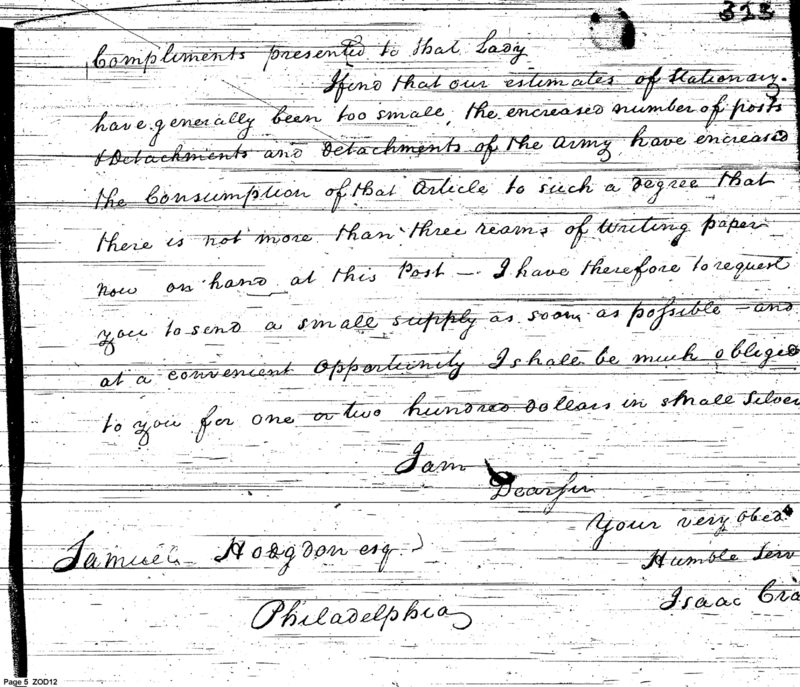 323
Compliments presented to that Lady
I find that our estimates of Stationary.
have generally been too small, the encreased number of posts
& Detachments and detachments of the Army have encreased
the Consumption of that Article to such a degree that
there is not more than three reams of Writing paper
now on hand at this Post — I have therefore to request
you to send a small supply as soon as possible — and
at a convenient Opportunity I shall be much obliged
to you for one or two hundred dollars in small Silver
I am
Dear Sir
Your very obed.t
Humble Serv
Isaac Cra
Samuel Hodgdon esq.
Philadelphia
Page 5 ZOD12